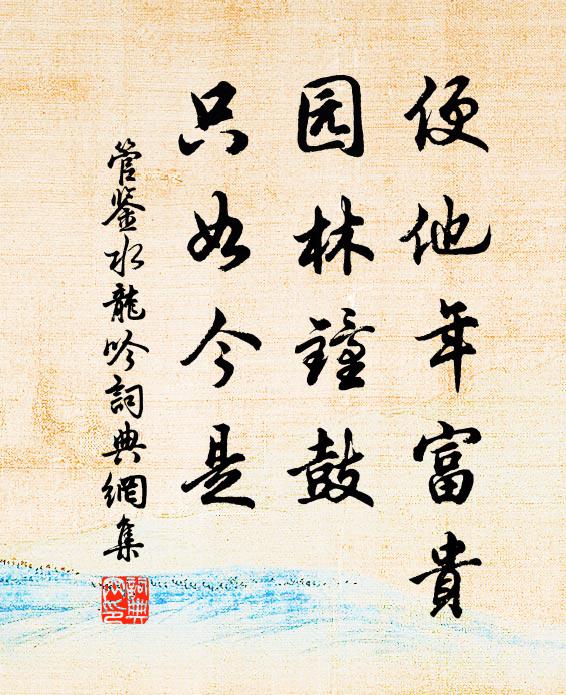 便他年富貴
园林鐘鼓
只如今是
管鉴水龍吟詞典網集